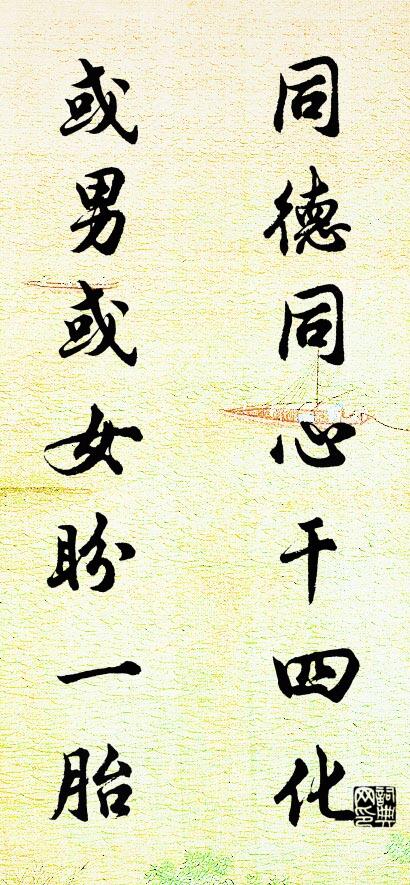 同德同心干四化
或男或女盼一胎